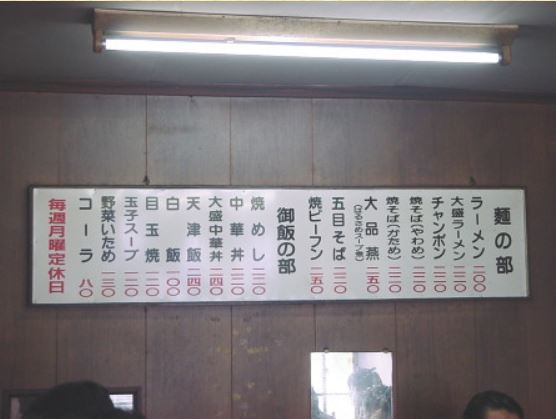 麺の部
ラーメン 二〇〇
大盛ラーメン 二二〇
チャンポン 二二〇
焼そば(やわめ) 二二〇
焼そば(かため) 二二〇
大品燕 二五〇
(はるさめスープ煮)
五目そば 二二〇
焼ビーフン 二五〇
御飯の部
焼めし 二二〇
中華丼 二二〇
大盛中華丼 二四〇
天津飯 二四〇
白飯 一〇〇
目玉焼 一二〇
玉子スープ 一二〇
野菜いため 一三〇
コーラ 八〇
毎週月曜定休日